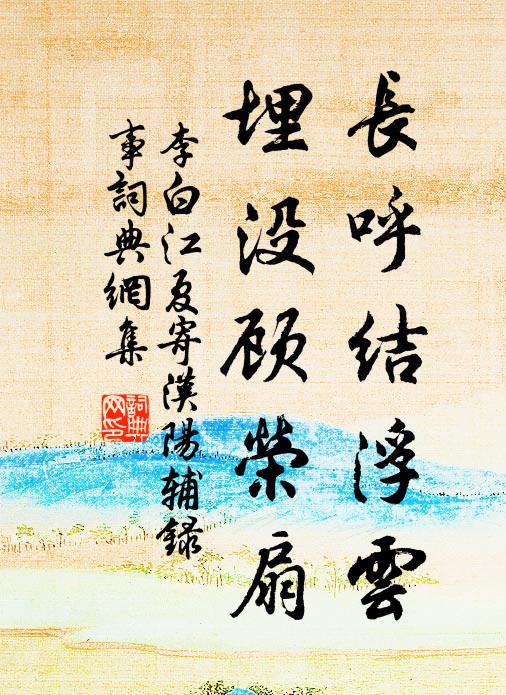 長呼結浮雲
埋没顧榮扇
李白江夏寄漢陽輔錄
事詞典網集
詞典網印